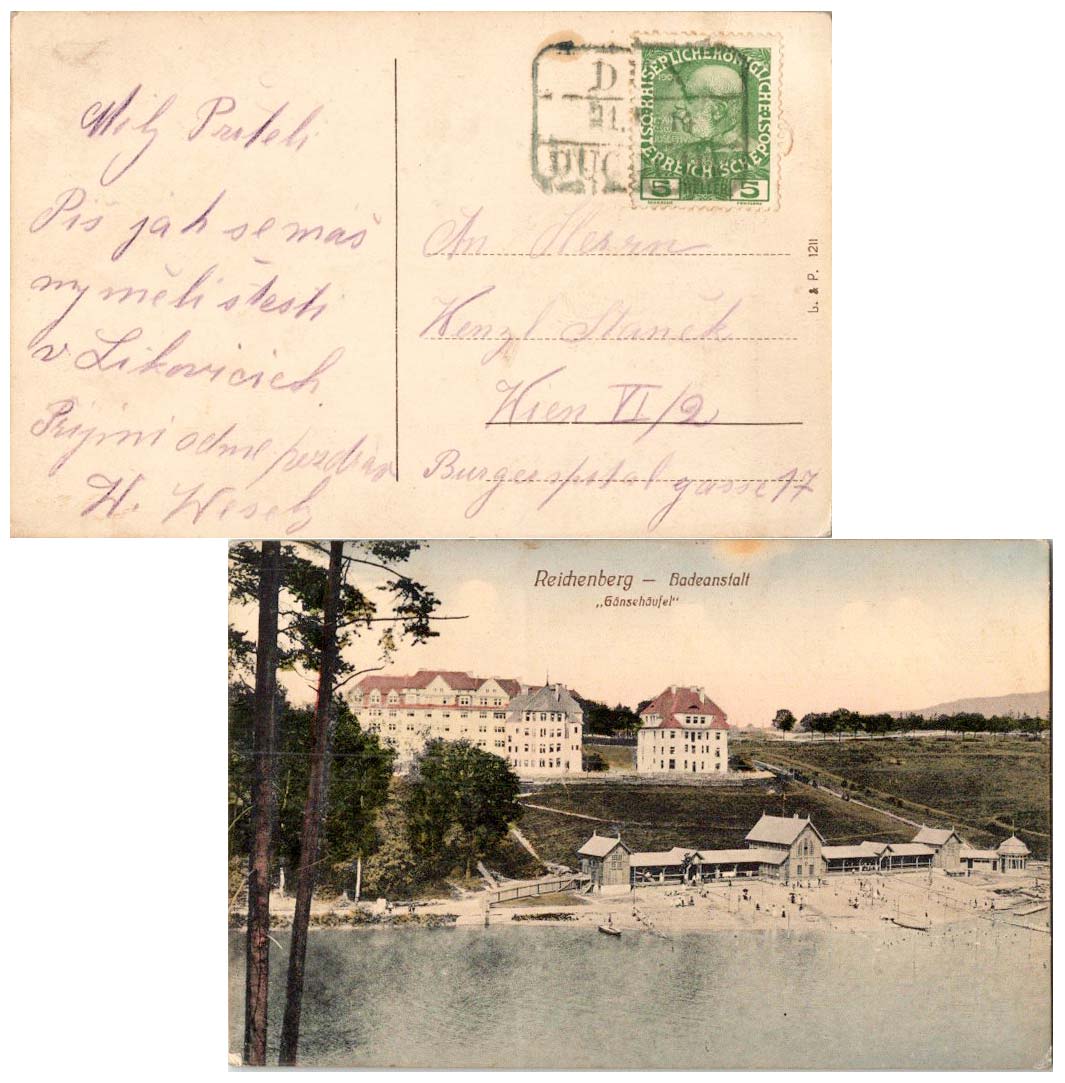 Milý Příteli
Piš jak se máš
my měli štesti
v Likovicich
Přijmi odme pozdrav
W. Wesely
D
21.
DUC
KAISERLICHE KÖNIGLICHE
ÖSTERREICHISCHE POST
1908
5 HELLER 5
An Herrn
Wenzl Staněk
Wien VI/2
Burgerspital gasse 17
L. & P. 1211
Reichenberg — Badeanstalt
„Gänsehäufel"